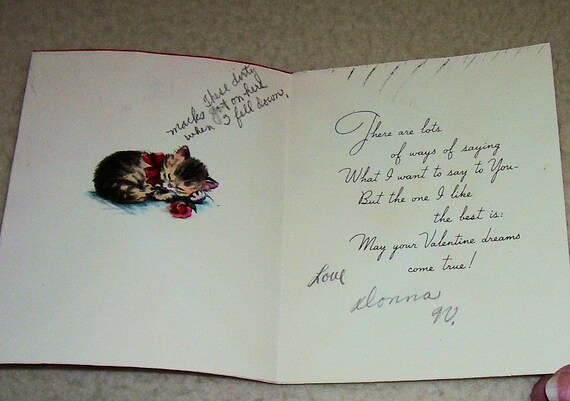 These dirty
marks got on here
when I fell down.
There are lots
of ways of saying
What I want to say to You-
But the one I like
the best is:
May your Valentine dreams
come true!
Love
Donna
W.